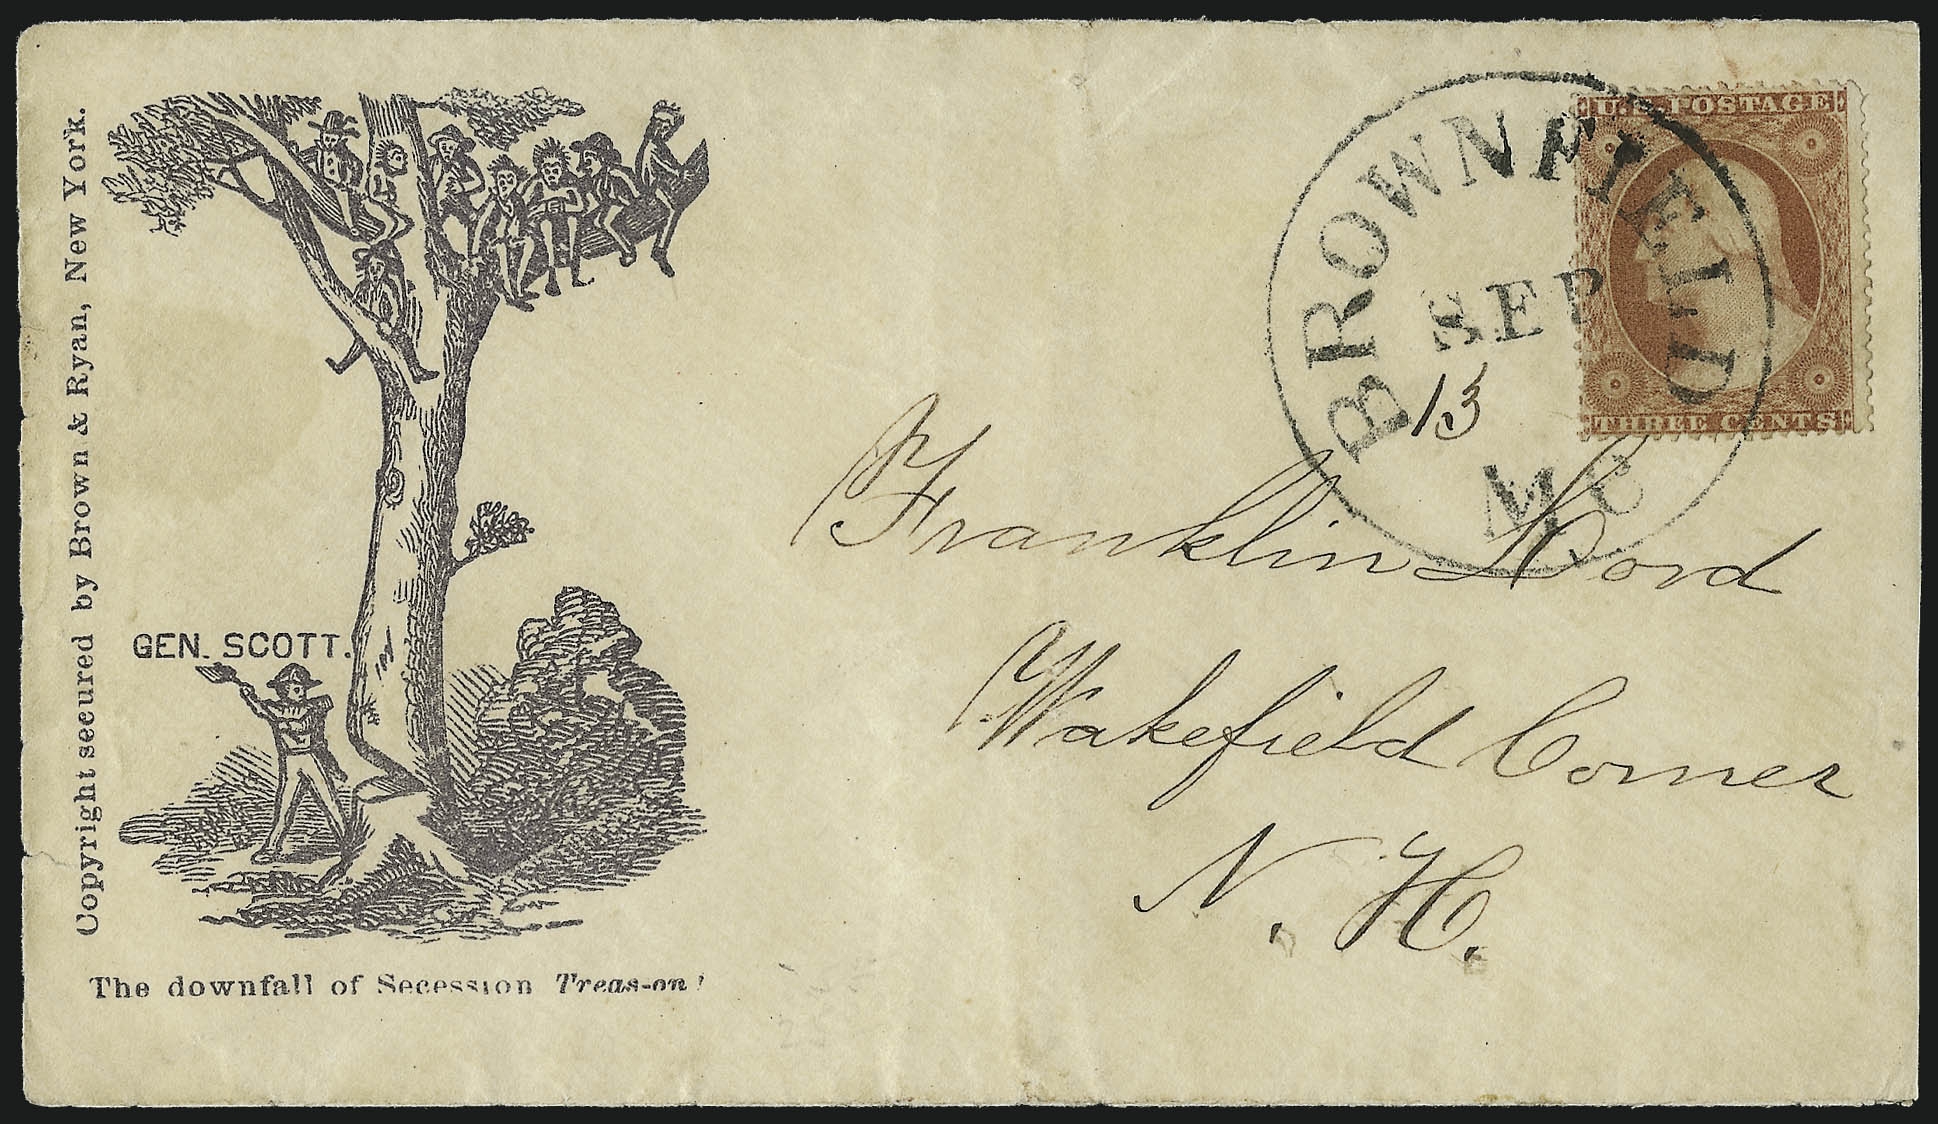 Copyright seeured by Brown & Ryan, New York.
GEN. SCOTT.
The downfall of Secession Treas-on!
U.S. POSTAGE
THREE CENTS
BROWNFIELD
SEP
13
Me
Franklin Hord
Wakefield Corner
N. H.